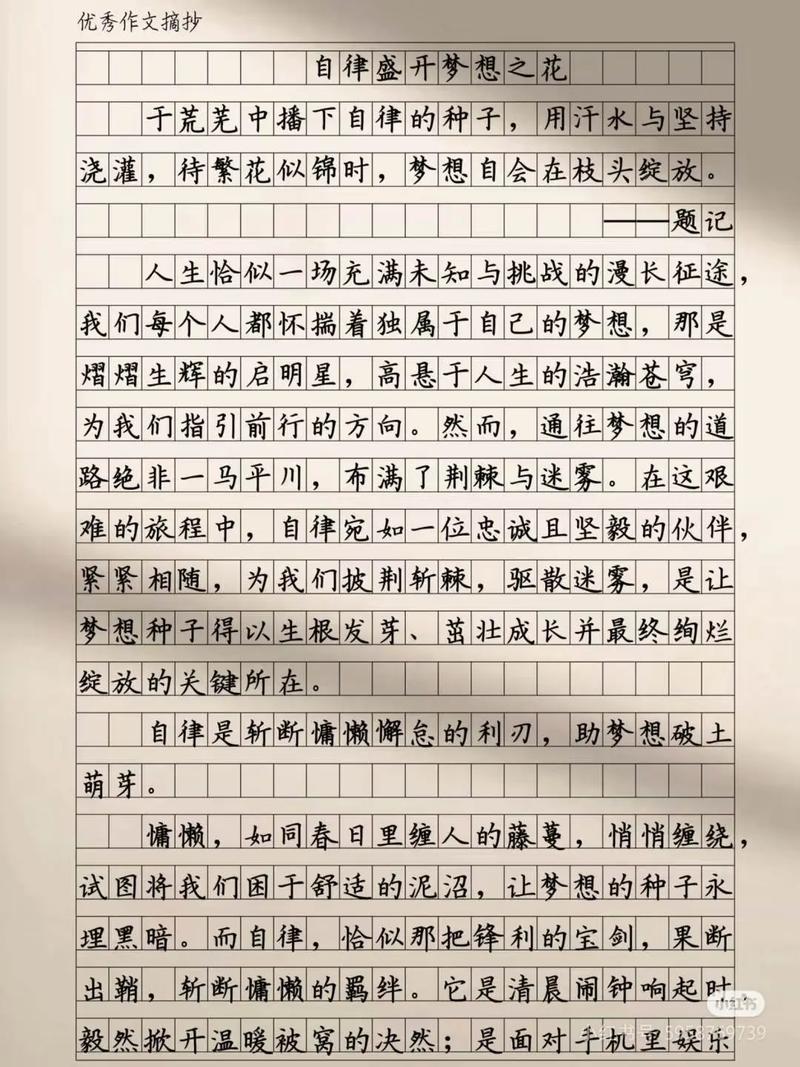 优秀作文摘抄
自律盛开梦想之花
于荒芜中播下自律的种子，用汗水与坚持
浇灌，待繁花似锦时，梦想自会在枝头绽放。
——题记
人生恰似一场充满未知与挑战的漫长征途，
我们每个人都怀揣着独属于自己的梦想，那是
熠熠生辉的启明星，高悬于人生的浩瀚苍穹，
为我们指引前行的方向。然而，通往梦想的道
路绝非一马平川，布满了荆棘与迷雾。在这艰
难的旅程中，自律宛如一位忠诚且坚毅的伙伴，
紧紧相随，为我们披荆斩棘，驱散迷雾，是让
梦想种子得以生根发芽、茁壮成长并最终绚烂
绽放的关键所在。
自律是斩断慵懒懈怠的利刃，助梦想破土
萌芽。
慵懒，如同春日里缠人的藤蔓，悄悄缠绕，
试图将我们困于舒适的泥沼，让梦想的种子永
埋黑暗。而自律，恰似那把锋利的宝剑，果断
出鞘，斩断慵懒的羁绊。它是清晨闹钟响起时
毅然掀开温暖被窝的决然；是面对手机里娱乐
小红书
小红书号: